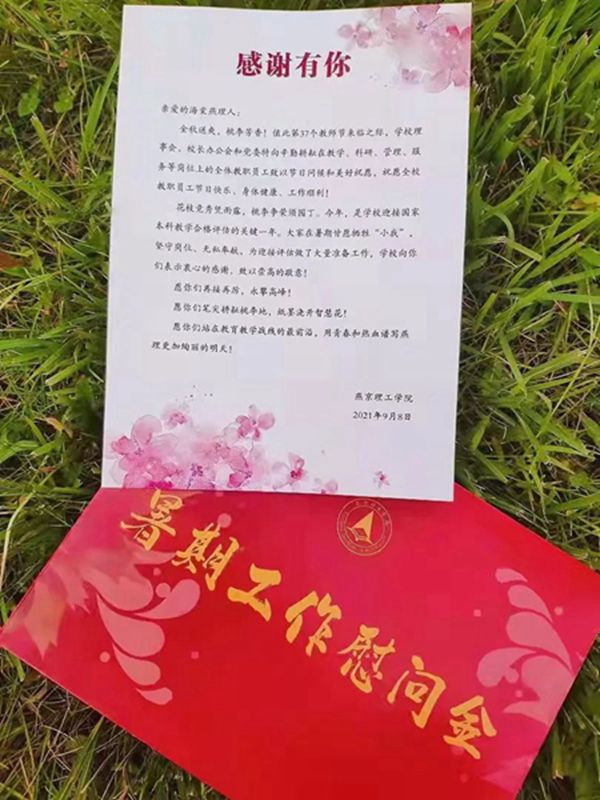 感谢有你
亲爱的海棠燕理人：
金秋送爽，桃李芳香！值此第37个教师节来临之际，学校理
事会、校长办公会和党委特向辛勤耕耘在教学、科研、管理、服
务等岗位上的全体教职员工致以节日问候和美好祝愿，祝愿全校
教职员工节日快乐、身体健康、工作顺利！
花枝竞秀凭雨露，桃李争荣须园丁。今年，是学校迎接国家
本科教学合格评估的关键一年。大家在暑期甘愿牺牲“小我”，
坚守岗位、无私奉献，为迎接评估做了大量准备工作，学校向你
们表示衷心的感谢，致以崇高的敬意！
愿你们再接再厉，永攀高峰！
愿你们笔尖耕耘桃李地，纸墨浇开智慧花！
愿你们站在教育教学战线的最前沿，用青春和热血谱写燕
理更加绚丽的明天！
燕京理工学院
2021年9月8日
暑期工作慰问金